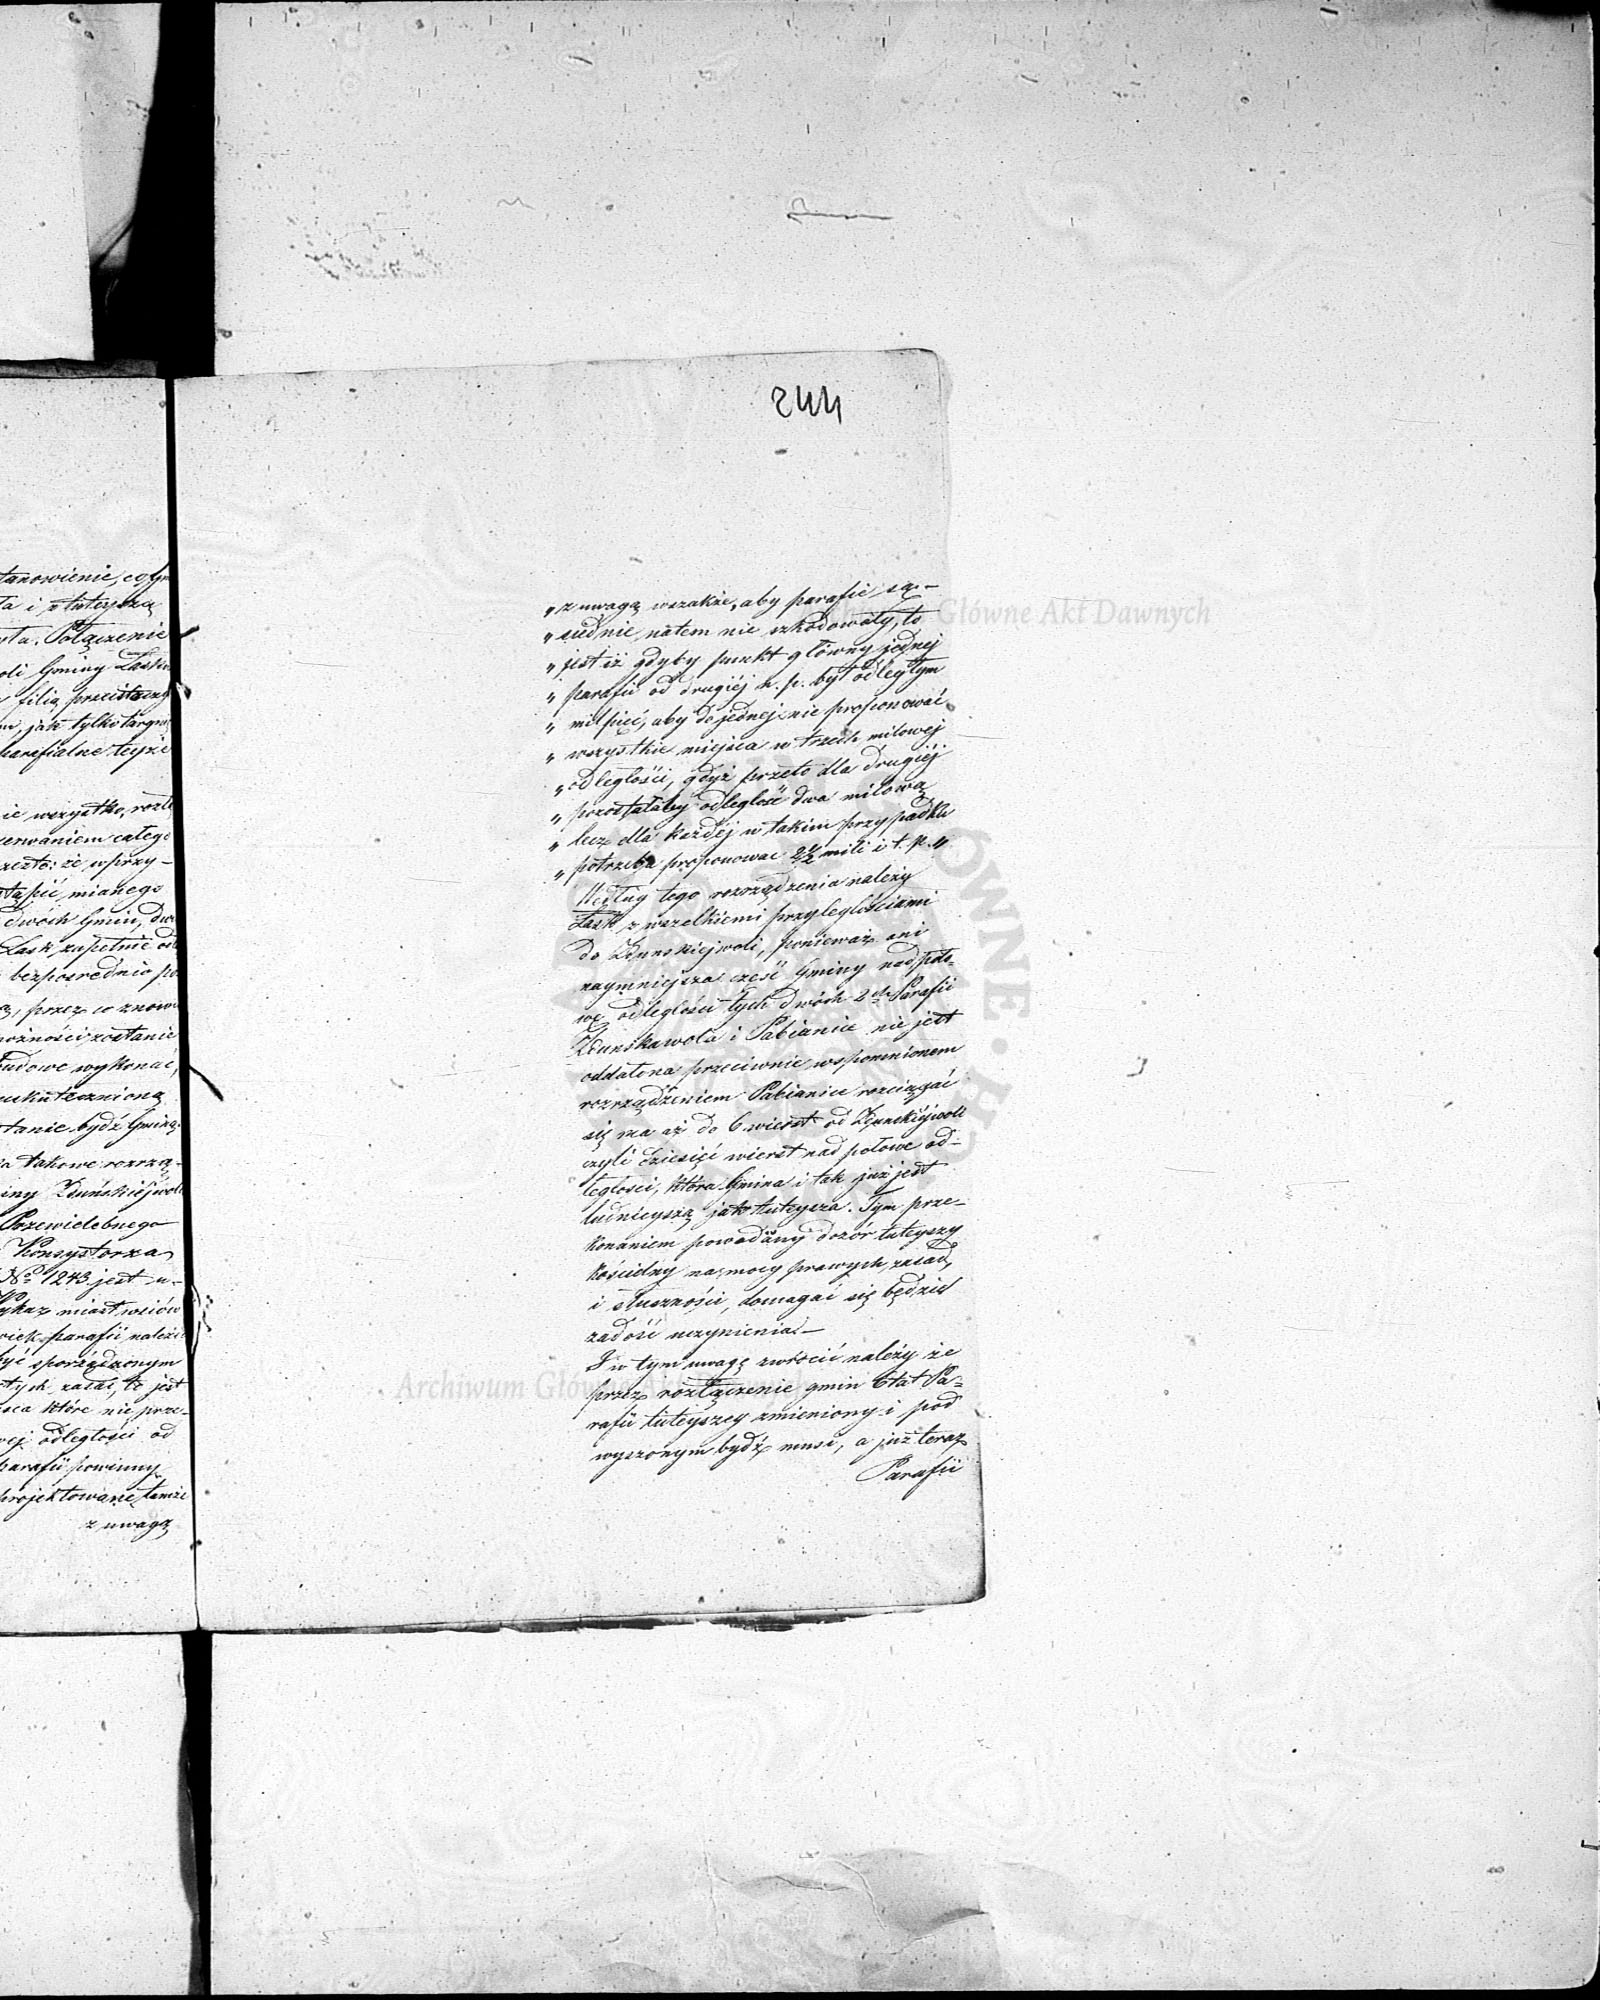 tanowienie, co
ta i z tuteyszą
sta. Połączenie
oli Gminy Laskiey
filią
m, jak tylko
parafialne teyże
ie wszystko,
zerwaniem całego
rzekło: że, w przy-
stąpić mianego
dwóch Gmin,
Łask, zupełnie
bezpośrednio
przez co znowu
możności zostanie
budowe wykonać,
uskutecznioną
stanie bydź Gminą
takowe rozrzą-
iny Zduńskiejwoli
Przewielebnego
Konsystorza
No 1243 jest u-
wykaz miast wsiów
wiek parafii należą
być sporządzonym
tych zasad, to jest
sca które nie prze-
wej odległości od
parafii powinny
projektowane, tamże
z uwagą
244
„z uwagą wszakże, aby parafie są-
„siednie natem nie szkodowały, to
„jest iż gdyby punkt główny jednej
„parafii od drugiéj n. p. był odległym
„mil pięć, aby do jednej nie proponować
„wszystkie miejsca w trzech milowej
„odległości, gdyż przeto dla drugiéj
„pozostałaby odległość dwa milowa
„lecz dla każdéj w takim przypadku
„potrzeba proponowac 2½ mili i t. p.„
Według tego rozrządzenia należy
Łask z wszelkiemi przyległościami
do Zdunskiejwoli, ponieważ ani
naymniejsza część Gminy nad poło-
wę odległości tych dwóch 2ch Parafii
Zdunskawola i Pabianice nie jest
oddalona przeciwnie wspomnionem
rozrządzeniem Pabianice rozciągać
się ma aż do 6 wierst od Zdunskiéjwoli
czyli dziesięć wierst nad połowe od-
ległosci, która Gmina i tak już jest
ludnieyszą jak tuteysza. Tym prze-
konaniem powodany dozór tuteyszy
kościelny na mocy prawych zasad,
i słuszności, domagać się będzie
zadość uczynienia.—
I w tym uwagę zwrócić należy że
przez rozłączenie gmin Etat Pa-
rafii tuteyszey zmieniony i pod
wyszonym bydź musi, a już teraz
Parafii
Archiwum Główne Akt Dawnych
Archiwum Główne Akt Dawnych